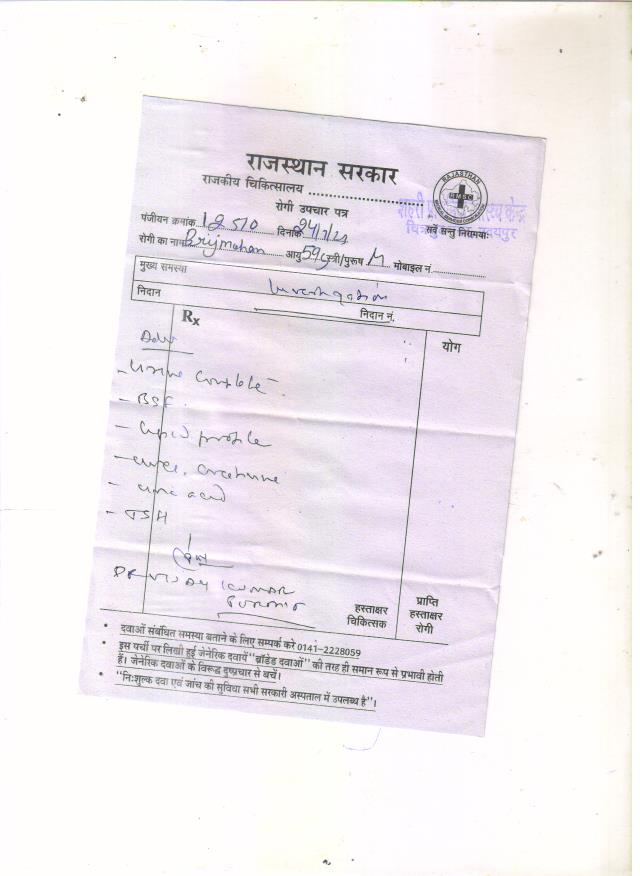 राजस्थान सरकार
राजकीय चिकित्सालय ........................
RAJASTHAN
RMSC
रोगी उपचार पत्र
पंजीयन क्रमांक 12510 दिनांक सर्वे सन्तु निरामयाः
रोगी का नाम Brijmohan आयु 59 स्त्री/पुरूष M मोबाइल नं.
मुख्य समस्या
Investigation
निदान निदान नं.
Rx योग
Adv
- Urine complete
- BSF
- Lipid profile
- urea, creatinine
- uric acid
- TSH
Dr VIJAY KUMAR
PUROHIT
हस्ताक्षर चिकित्सक
प्राप्ति हस्ताक्षर रोगी
• दवाओं संबंधित समस्या बताने के लिए सम्पर्क करे 0141-2228059
• इस पर्ची पर लिखी हुई जेनेरिक दवायें "ब्रॉडेड दवाओं" की तरह ही समान रूप से प्रभावी होती
हैं। जेनेरिक दवाओं के विरूद्ध दुष्प्रचार से बचें।
• "निःशुल्क दवा एवं जांच की सुविधा सभी सरकारी अस्पताल में उपलब्ध है"।